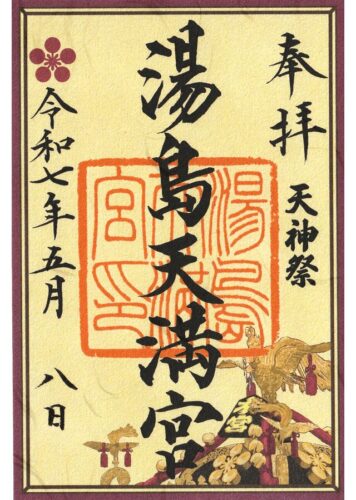 奉拝
天神祭
湯島天満宮
湯島天満宮印
令和七年五月 八日